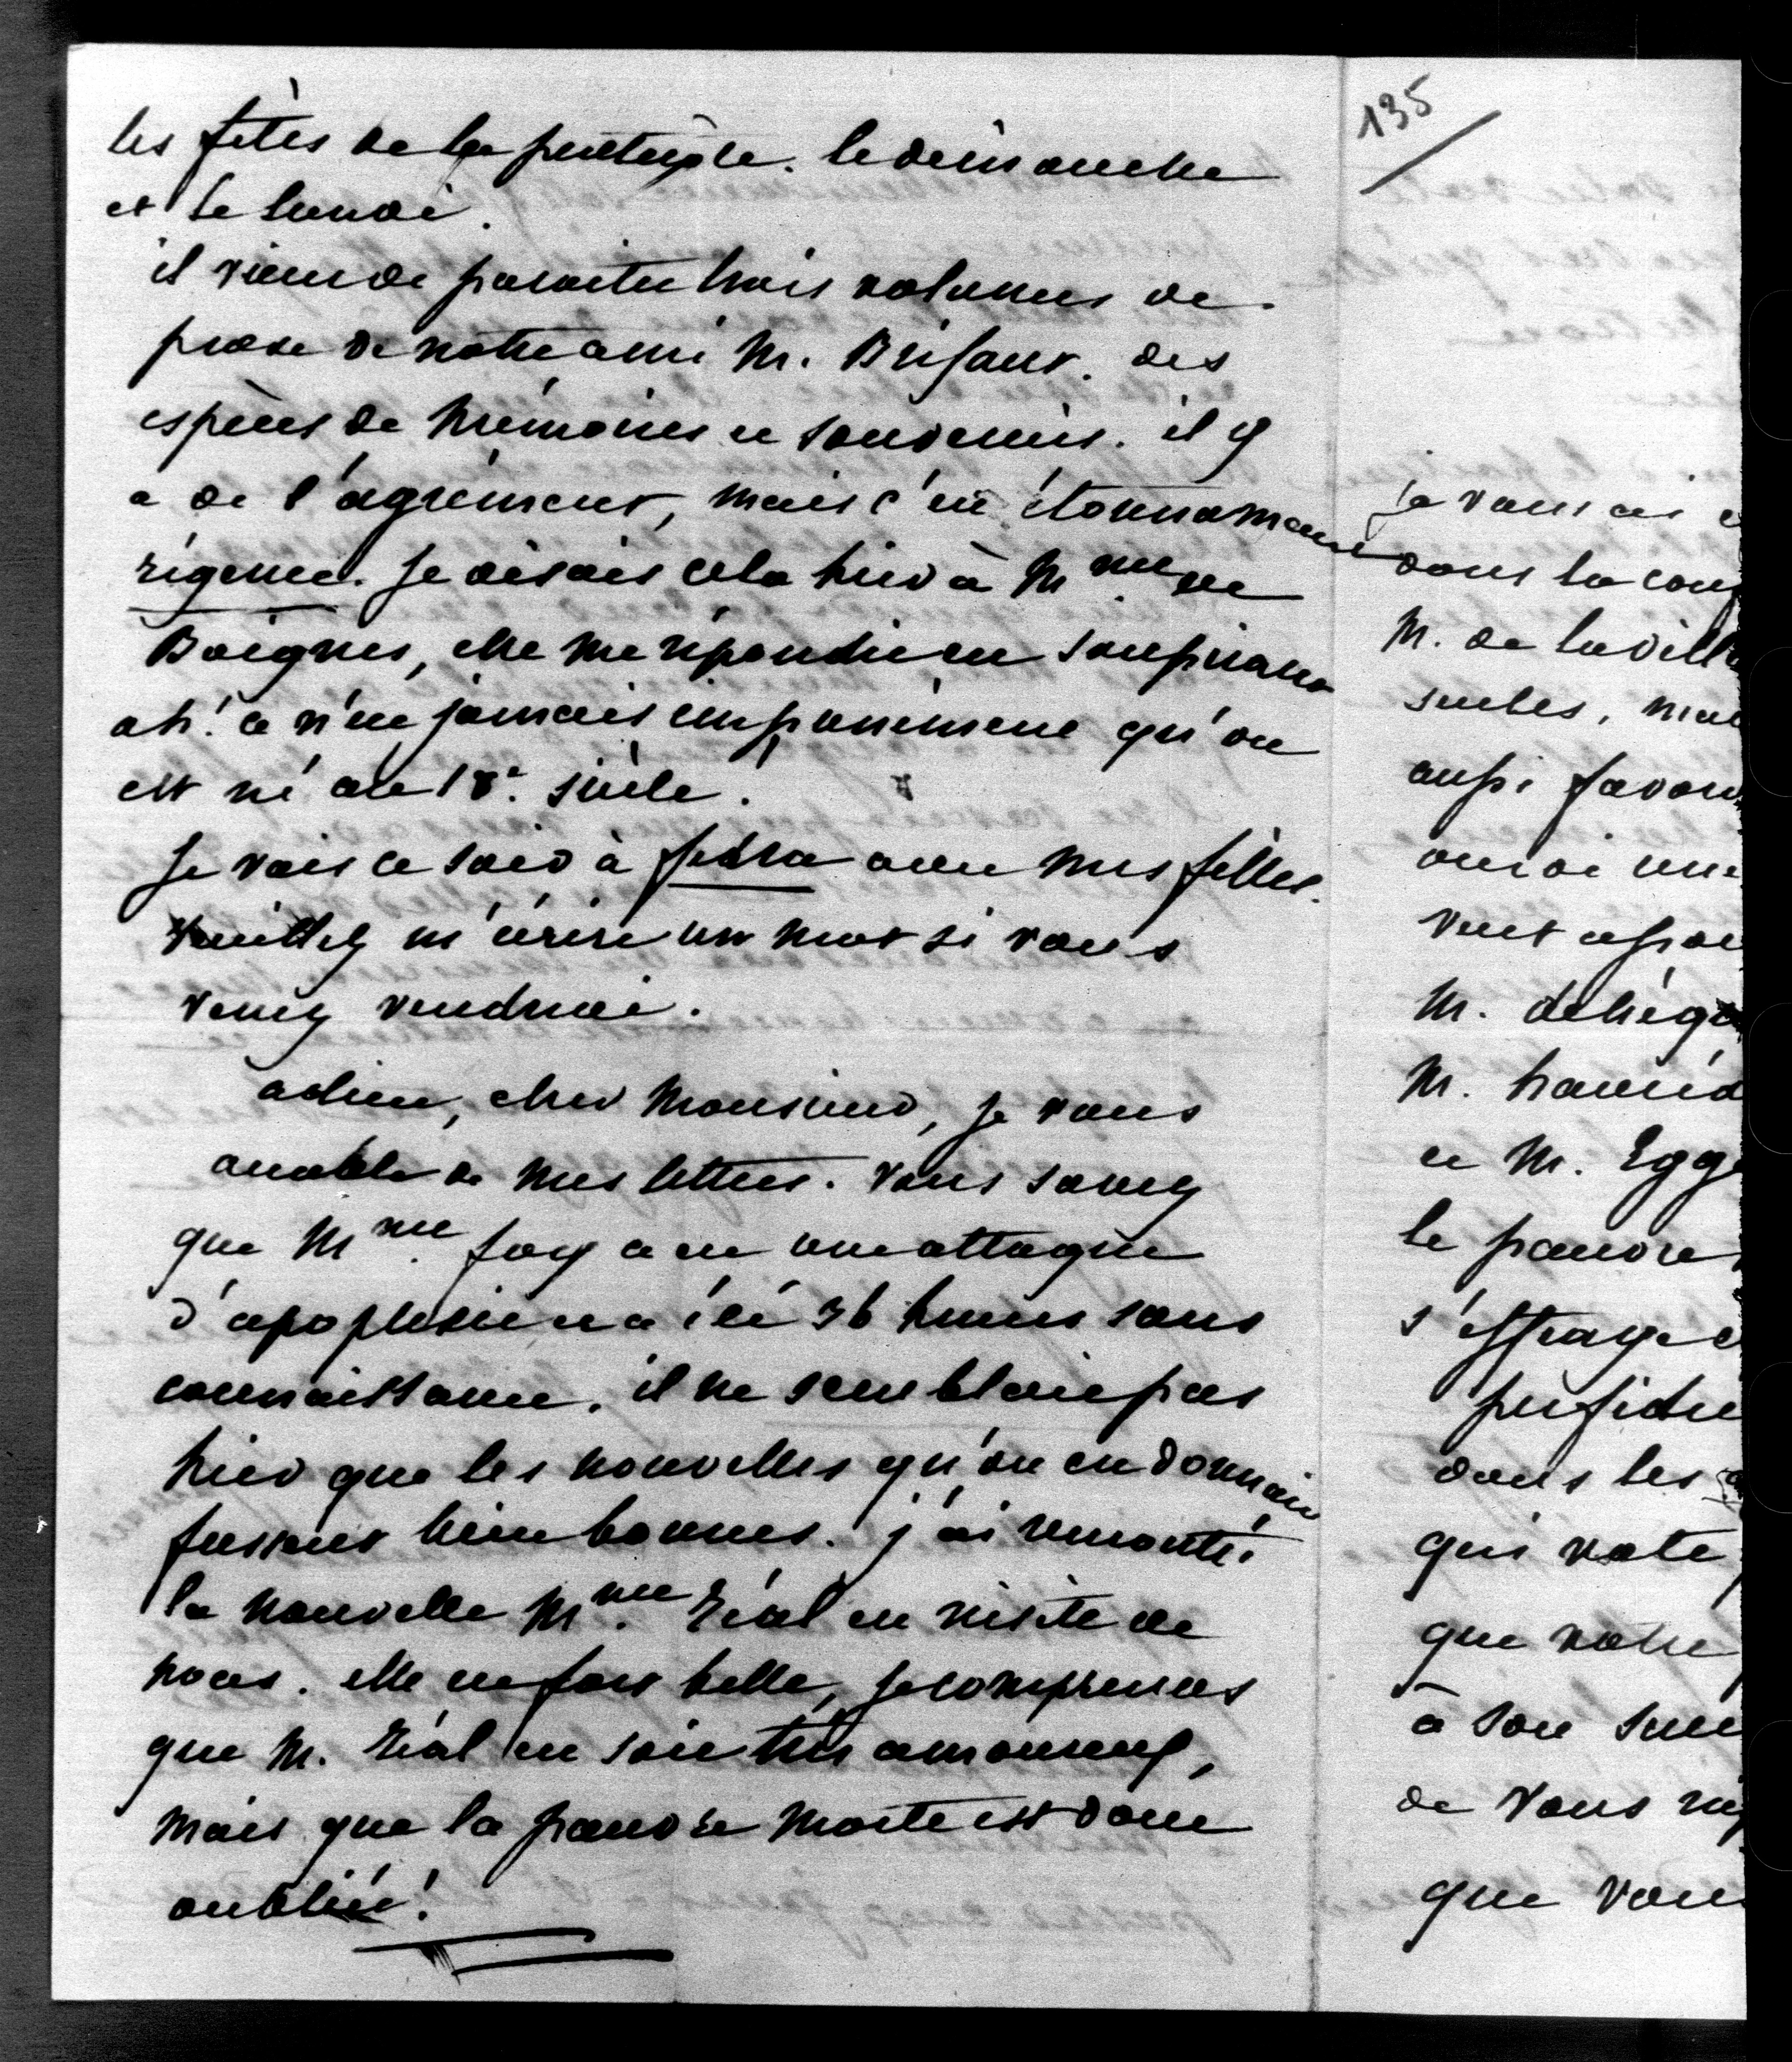 les fêtes de la pentecôte. le dimanche
et le lundi.
il vient de paraitre trois volumes de
prose de notre ami M. Brifaut. des
espèces de mémoires et souvenirs. il y
a de l'agrément, mais c'est étonnamment
régence. Je disais cela hier à Mme de
Boignes, elle me répondit en soupirant
ah! ce n'est jamais impunément qu'on
est né au 18e. siècle.
Je vais ce soir à fedra avec mes filles.
Veuillez m'écrire un mot si vous
venez vendredi.
adieu, cher Monsieur, je vous
accable de mes lettres. Vous savez
que Mme. foy a eu une attaque
d'apoplexie et a été 36 heures sans
connaissance. il ne semblait pas
hier que les nouvelles qu'on en donnait
fussent bien bonnes. j'ai rencontré
la nouvelle Mme. Réal en visite de
noces. elle est fort belle, je comprends
que M. Réal en soit très amoureux,
mais que la pauvre morte est donc
oubliée!
135
je vous ai
dans la cou
M. de laville
seules, mai
aussi favor
aurai une
veut
M. dehèq
M. 
et M. Egge
le pauvre
s'effraye
perfidie
dans les
qui vote
que votre
à son
de vous
que vous